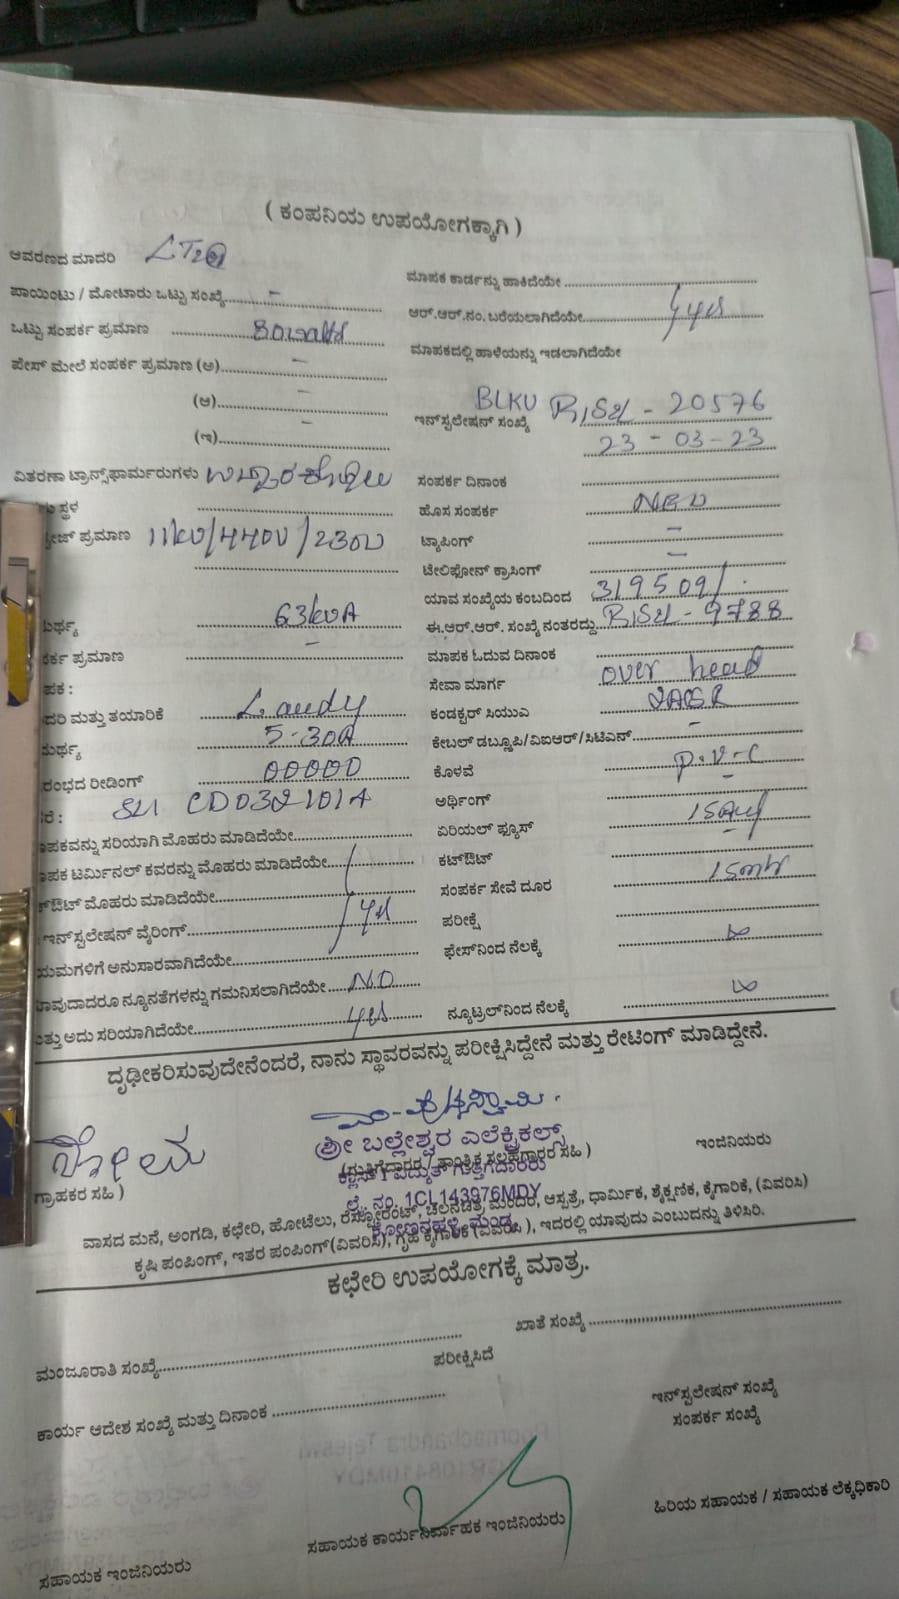 ( ಕಂಪನಿಯ ಉಪಯೋಗಕ್ಕಾಗಿ )
ಆವರಣದ ಮಾದರಿ LT2
ಪಾಯಿಂಟು / ಮೋಟಾರು ಒಟ್ಟು ಸಂಖ್ಯೆ -
ಒಟ್ಟು ಸಂಪರ್ಕ ಪ್ರಮಾಣ
ಪೇಸ್ ಮೇಲೆ ಸಂಪರ್ಕ ಪ್ರಮಾಣ (ಅ) -
(ಆ) -
(ಇ) -
ವಿತರಣಾ ಟ್ರಾನ್ಸ್‌ಫಾರ್ಮರುಗಳು
ಸ್ಥಳ
ಪ್ರಮಾಣ 11kv/440v/230v
63kvA
ಪ್ರಮಾಣ -
ಮತ್ತು ತಯಾರಿಕೆ
5-30A
ರೀಡಿಂಗ್ 00000
ಸರಿಯಾಗಿ ಮೊಹರು ಮಾಡಿದೆಯೇ
ಟರ್ಮಿನಲ್ ಕವರನ್ನು ಮೊಹರು ಮಾಡಿದೆಯೇ
ಮೊಹರು ಮಾಡಿದೆಯೇ
ಇನ್‌ಸ್ಟಲೇಷನ್ ವೈರಿಂಗ್ yes
ಅನುಸಾರವಾಗಿದೆಯೇ
ನ್ಯೂನತೆಗಳನ್ನು ಗಮನಿಸಲಾಗಿದೆಯೇ NO
ಅದು ಸರಿಯಾಗಿದೆಯೇ yes
ಮಾಪಕ ಕಾರ್ಡನ್ನು ಹಾಕಿದೆಯೇ
ಆರ್.ಆರ್.ನಂ. ಬರೆಯಲಾಗಿದೆಯೇ yes
ಮಾಪಕದಲ್ಲಿ ಹಾಳೆಯನ್ನು ಇಡಲಾಗಿದೆಯೇ
ಇನ್‌ಸ್ಟಲೇಷನ್ ಸಂಖ್ಯೆ BLKU - 20576
23-03-23
ಸಂಪರ್ಕ ದಿನಾಂಕ
ಹೊಸ ಸಂಪರ್ಕ
ಟ್ಯಾಪಿಂಗ್ -
ಟೇಲಿಫೋನ್ ಕ್ರಾಸಿಂಗ್ -
ಯಾವ ಸಂಖ್ಯೆಯ ಕಂಬದಿಂದ 319509/.
ಈ.ಆರ್.ಆರ್. ಸಂಖ್ಯೆ ನಂತರದ್ದು - 9788
ಮಾಪಕ ಓದುವ ದಿನಾಂಕ
ಸೇವಾ ಮಾರ್ಗ over head
ಕಂಡಕ್ಟರ್ ಸಿಯುಎ
ಕೇಬಲ್ ಡಬ್ಲೂಪಿ/ವಿಐಆರ್/ಸಿಟಿಎನ್ -
ಕೊಳವೆ P.V.C
ಅರ್ಥಿಂಗ್ -
ಏರಿಯಲ್ ಫ್ಯೂಸ್
ಕಟ್‌ಔಟ್ -
ಸಂಪರ್ಕ ಸೇವೆ ದೂರ 15mtr
ಪರೀಕ್ಷೆ
ಫೇಸ್‌ನಿಂದ ನೆಲಕ್ಕೆ ∞
ನ್ಯೂಟ್ರಲ್‌ನಿಂದ ನೆಲಕ್ಕೆ ∞
ದೃಢೀಕರಿಸುವುದೇನೆಂದರೆ, ನಾನು ಸ್ಥಾವರವನ್ನು ಪರೀಕ್ಷಿಸಿದ್ದೇನೆ ಮತ್ತು ರೇಟಿಂಗ್ ಮಾಡಿದ್ದೇನೆ.
ಶ್ರೀ ಬಲ್ಲೇಶ್ವರ ಎಲೆಕ್ಟ್ರಿಕಲ್ಸ್
(ಗುತ್ತಿಗೆದಾರರ / ತಾಂತ್ರಿಕ ಸಲಹೆಗಾರರ ಸಹಿ )
ಇಂಜಿನಿಯರು
ಕ್ಲಾಸ್ 1 ವಿದ್ಯುತ್ ಗುತ್ತಿಗೆದಾರರು
ಲೈ. ನಂ. 1CL143976MDY
ಗ್ರಾಹಕರ ಸಹಿ )
ವಾಸದ ಮನೆ, ಅಂಗಡಿ, ಕಛೇರಿ, ಹೋಟೆಲು, ರೆಸ್ಟೋರೆಂಟ್, ಚಲನಚಿತ್ರ ಮಂದಿರ, ಆಸ್ಪತ್ರೆ, ಧಾರ್ಮಿಕ, ಶೈಕ್ಷಣಿಕ, ಕೈಗಾರಿಕೆ, (ವಿವರಿಸಿ)
ಕೃಷಿ ಪಂಪಿಂಗ್, ಇತರ ಪಂಪಿಂಗ್ (ವಿವರಿಸಿ), ಗೃಹ ಕೈಗಾರಿಕೆ (ವಿವರಿಸಿ ), ಇದರಲ್ಲಿ ಯಾವುದು ಎಂಬುದನ್ನು ತಿಳಿಸಿರಿ.
ಕಛೇರಿ ಉಪಯೋಗಕ್ಕೆ ಮಾತ್ರ.
ಮಂಜೂರಾತಿ ಸಂಖ್ಯೆ
ಖಾತೆ ಸಂಖ್ಯೆ
ಪರೀಕ್ಷಿಸಿದೆ
ಕಾರ್ಯ ಆದೇಶ ಸಂಖ್ಯೆ ಮತ್ತು ದಿನಾಂಕ
ಇನ್‌ಸ್ಟಲೇಷನ್ ಸಂಖ್ಯೆ
ಸಂಪರ್ಕ ಸಂಖ್ಯೆ
ಸಹಾಯಕ ಇಂಜಿನಿಯರು
ಸಹಾಯಕ ಕಾರ್ಯನಿರ್ವಾಹಕ ಇಂಜಿನಿಯರು
ಹಿರಿಯ ಸಹಾಯಕ / ಸಹಾಯಕ ಲೆಕ್ಕಧಿಕಾರಿ